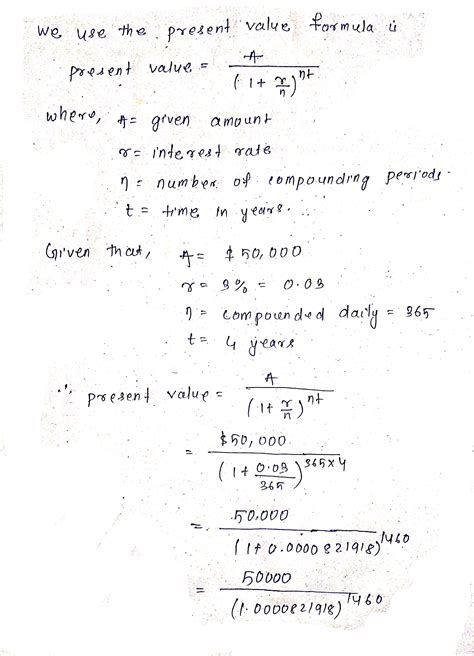 We use the present value formula is
present value = A / (1 + r/n)^nt
where, A = given amount
r = interest rate
n = number of compounding periods.
t = time in years.
Given that, A = $50,000
r = 3% = 0.03
n = compounded daily = 365
t = 4 years
∴ present value = A / (1 + r/n)^nt
= $50,000 / (1 + 0.03/365)^365×4
= 50,000 / (1 + 0.0000821918)^1460
= 50000 / (1.0000821918)^1460